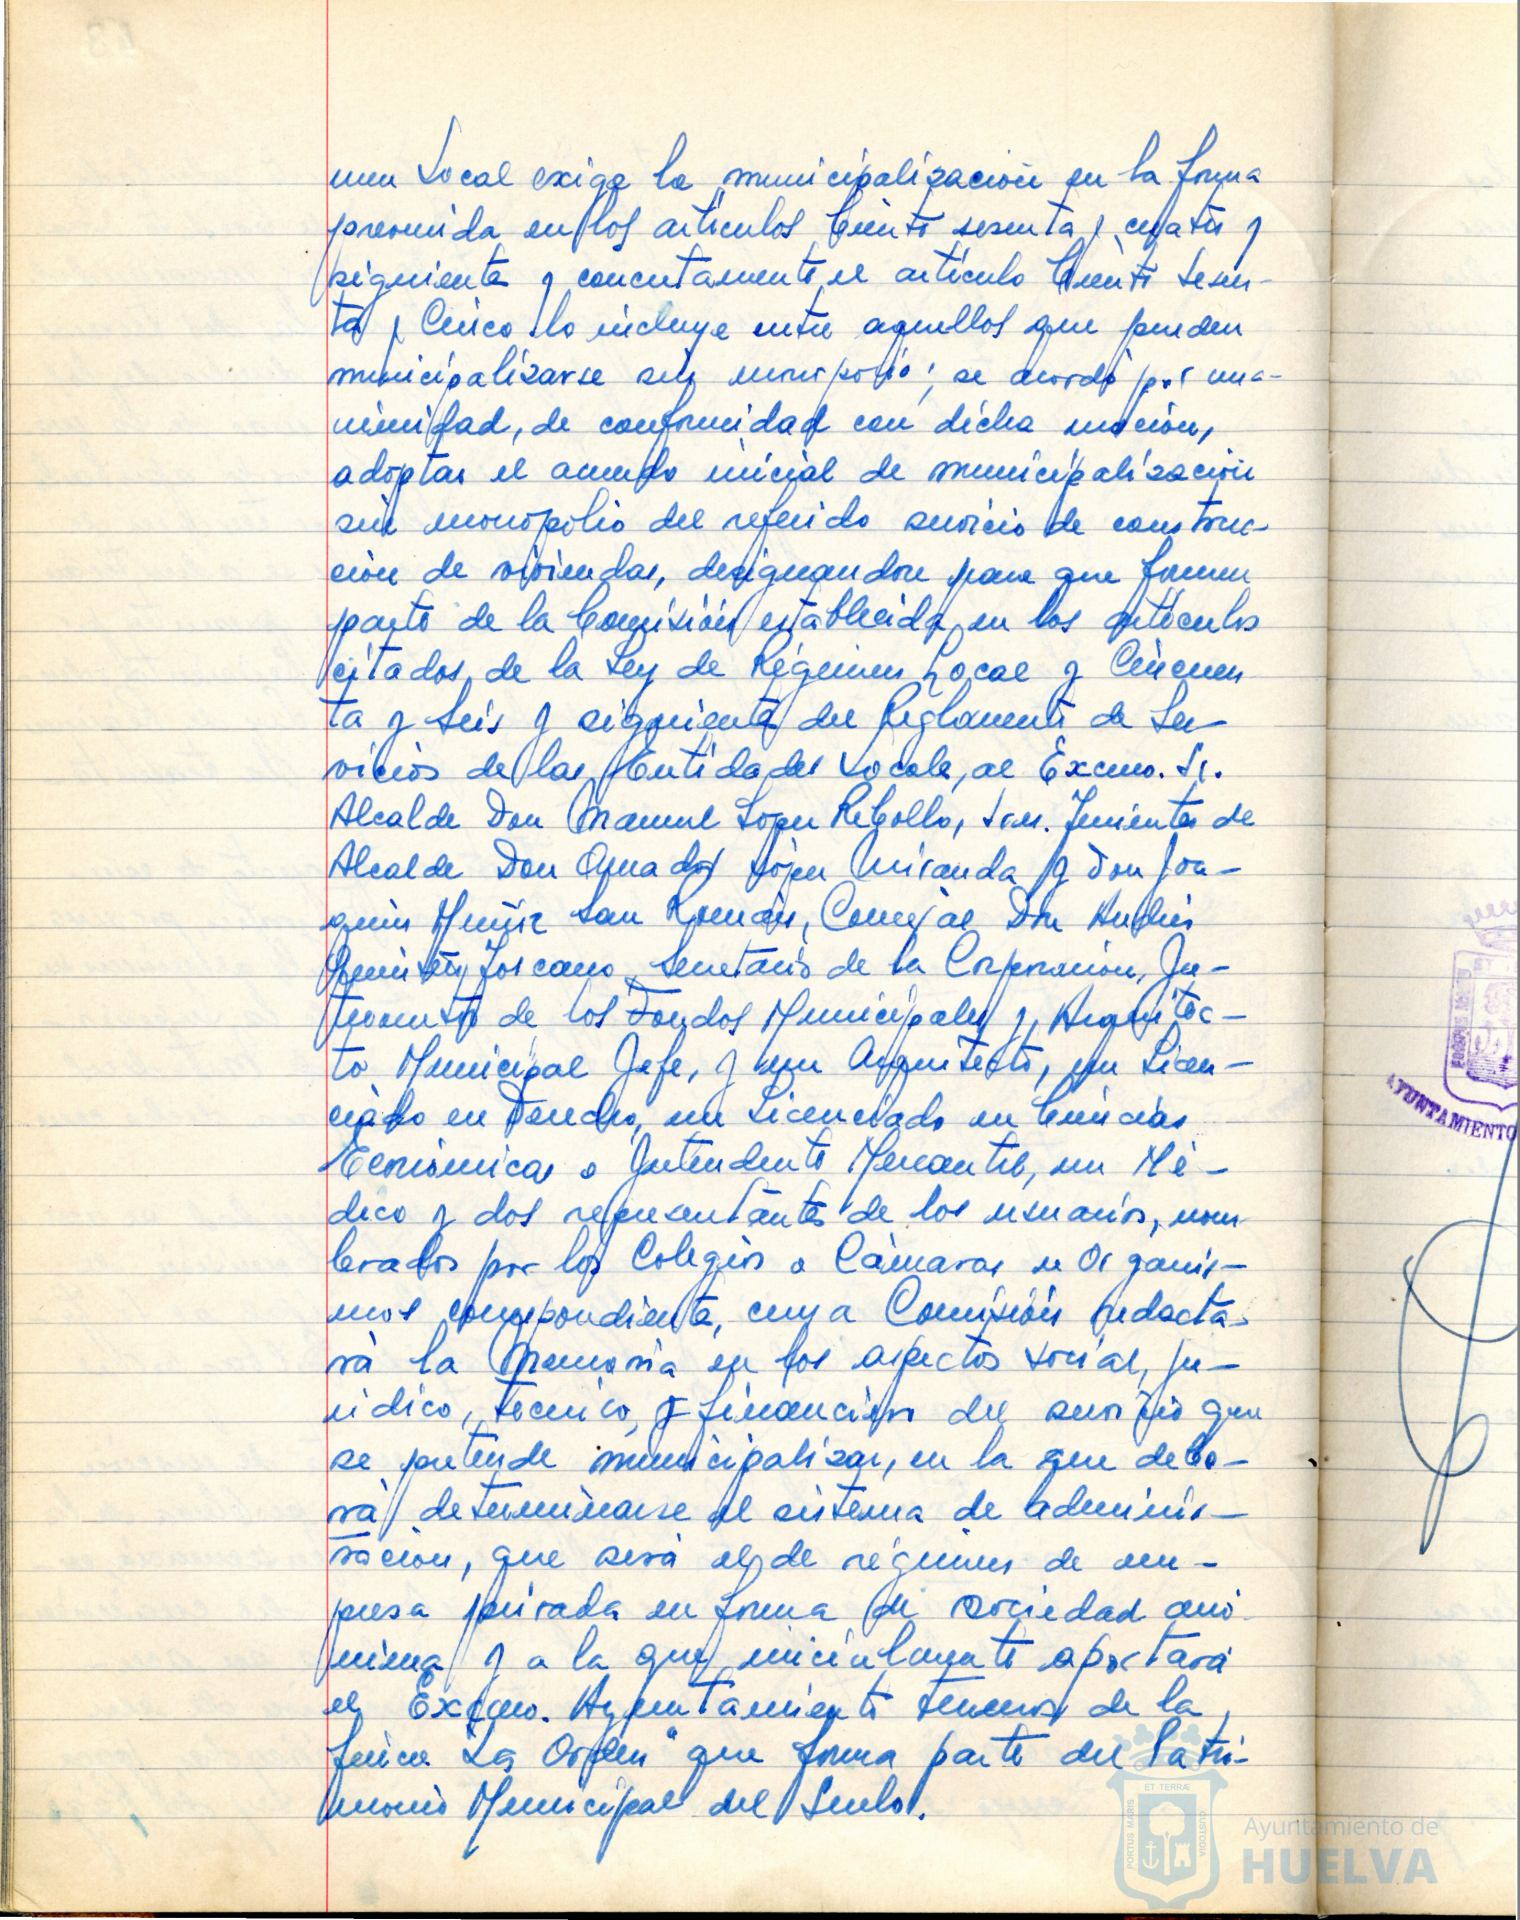 men Local exige la municipalización en la forma
prevenida en los artículos Ciento sesenta y cuatro y
siguientes y concretamente el artículo Ciento Sesen-
ta y Cinco lo incluye entre aquellos que pueden
municipalizarse sin monopolio; se acordó por una-
nimidad, de conformidad con dicha moción,
adoptar el acuerdo inicial de municipalización
sin monopolio del referido servicio de construc-
ción de viviendas, designandose para que formen
parte de la Comisión establecida en los artículos
citados, de la Ley de Régimen Local y Cincuen
ta y Seis y siguientes del Reglamento de Ser-
vicios de las Entidades Locales, al Excmo. Sr.
Alcalde Don Manuel López Rebollo, Sres. Tenientes de
Alcalde Don Amador López Miranda y Don Joa-
quín Muñiz San Román, Concejal Don Andrés
Toscano, Secretario de la Corporación, In-
terventor de los Fondos Municipales y Arquitec-
to Municipal Jefe, y un Arquitecto, un Licen-
ciado en Derecho, un Licenciado en Ciencias
Económicas o Intendente Mercantil, un Mé-
dico y dos representantes de los usuarios, nom
brados por los Colegios o Cámaras u Organis-
mos correspondientes, cuya Comisión redacta-
rá la Memoria en los aspectos social, ju-
rídico, técnico y financiero del servicio que
se pretende municipalizar, en la que debe-
rá determinarse el sistema de adminis-
tración, que será el de régimen de em-
presa privada en forma de sociedad anó-
nima y a la que inicialmente aportará
el Excmo. Ayuntamiento terrenos de la
finca "La Orden" que forma parte del Patri-
monio Municipal del Suelo.
AYUNTAMIENTO
PORTUS MARIS
ET TERRÆ
CUSTODIA
Ayuntamiento de
HUELVA